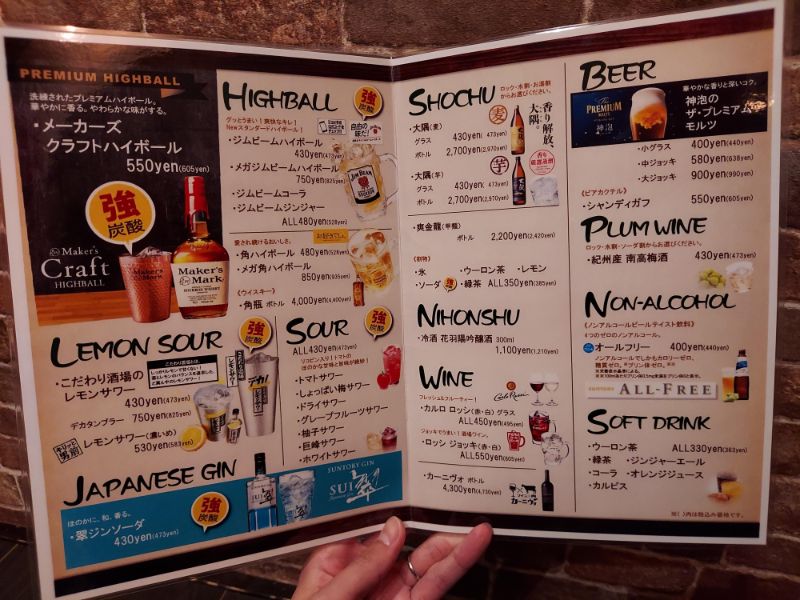 PREMIUM HIGHBALL
洗練されたプレミアムハイボール。
華やかに香る。やわらかな味がする。
・メーカーズ
クラフトハイボール
550yen(605yen)
強
炭酸
Maker's
Craft
HIGHBALL
Maker's
Mark
HIGHBALL
強
炭酸
グッとうまい!爽快なキレ!
Newスタンダードハイボール!
・ジムビームハイボール
430yen(473yen)
・メガジムビームハイボール
750yen(825yen)
・ジムビームコーラ
・ジムビームジンジャー
ALL480yen(528yen)
JIM BEAM
愛され続けるおいしさ。
・角ハイボール 480yen(528yen)
・メガ角ハイボール
850yen(935yen)
《ウイスキー》
・角瓶 ボトル 4,000yen(4,400yen)
LEMON SOUR
強
炭酸
・こだわり酒場の
レモンサワー
430yen(473yen)
デカタンブラー 750yen(825yen)
キリッと
男前
レモンサワー(濃いめ)
530yen(583yen)
こだわり酒場は、
SOUR
強
炭酸
ALL430yen(473yen)
リコピン入り!トマトの
ほのかな甘味と旨味が絶妙!
・トマトサワー
・しょっぱい梅サワー
・ドライサワー
・グレープフルーツサワー
・柚子サワー
・巨峰サワー
・ホワイトサワー
JAPANESE GIN
ほのかに、和、香る。
・翠ジンソーダ
430yen(473yen)
強
炭酸
SUNTORY GIN
SUI
翠
SHOCHU
ロック・水割・お湯割
からお選びください。
・大隅(麦)
グラス 430yen(473yen)
ボトル 2,700yen(2,970yen)
麦
・大隅(芋)
グラス 430yen(473yen)
ボトル 2,700yen(2,970yen)
芋
香り解放。
大隅。
・爽金龍(甲類)
ボトル 2,200yen(2,420yen)
《割物》
・氷 ・ウーロン茶 ・レモン
・ソーダ 強 ・緑茶 ALL350yen(385yen)
NIHONSHU
・冷酒 花羽陽吟醸酒 300ml
1,100yen(1,210yen)
WINE
《フレッシュ&フルーティー》
・カルロ ロッシ(赤・白)グラス
ALL450yen(495yen)
Carlo Rossi
ジョッキでうまい!酒場ワイン。
・ロッシ ジョッキ(赤・白)
ALL550yen(605yen)
・カーニヴォ ボトル
4,300yen(4,730yen)
カーニヴォ
BEER
The
PREMIUM
MALT'S
神泡
華やかな香りと深いコク。
神泡の
ザ・プレミアム
モルツ
・小グラス 400yen(440yen)
・中ジョッキ 580yen(638yen)
・大ジョッキ 900yen(990yen)
《ビアカクテル》
・シャンディガフ 550yen(605yen)
PLUM WINE
ロック・水割・ソーダ割からお選びください。
・紀州産 南高梅酒 430yen(473yen)
NON-ALCOHOL
《ノンアルコールビールテイスト飲料》
4つのゼロのノンアルコール。
・オールフリー 400yen(440yen)
ノンアルコールでしかもカロリーゼロ、
糖質ゼロ、プリン体ゼロ。
SUNTORY ALL-FREE
SOFT DRINK
・ウーロン茶 ALL330yen(363yen)
・緑茶 ・ジンジャーエール
・コーラ ・オレンジジュース
・カルピス
※( )内は税込み価格です。